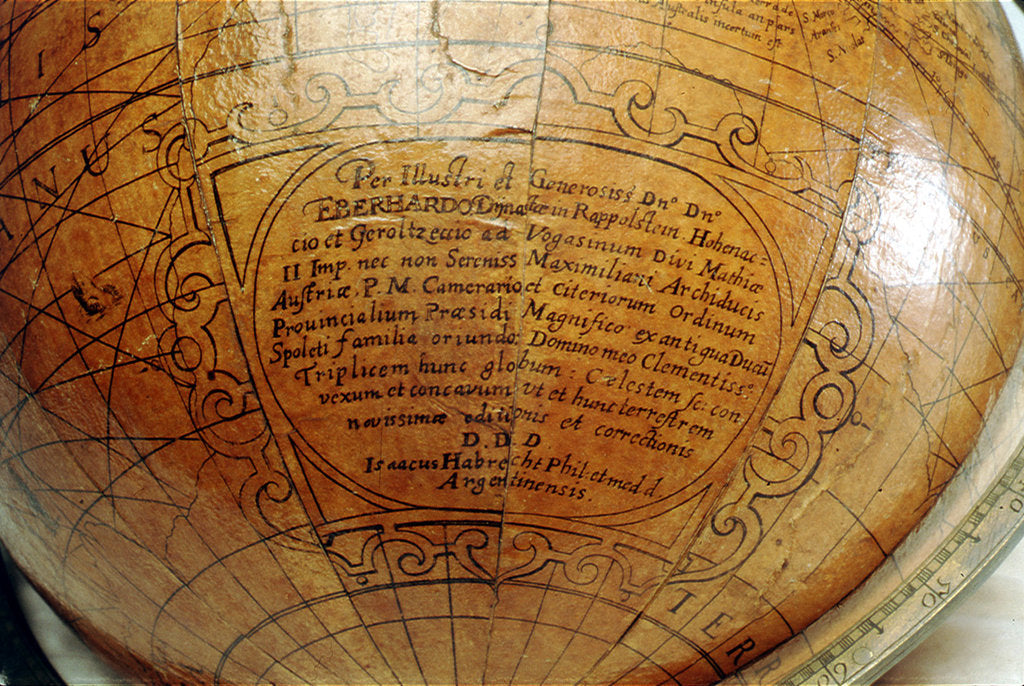 insula an pars
Australis incertum est
I S
N V S
Per Illustri et Generosiss.º Dnº Dnº
EBERHARDO Dynastæ in Rappolstein. Hohenac=
cio et Geroltzeccio ad Vogasinum Divi Mathiæ
II Imp. nec non Sereniss Maximiliani Archiducis
Austriæ. P. M. Camerario et Citeriorum Ordinum
Prouincialium Præsidi Magnifico ex antiqua Ducũ
Spoleti familia oriundo: Domino meo Clementissº:
Triplicem hunc globum: Cælestem sc: con
vexum et concavum ut et hunc terrestrem
novissimæ editionis et correctionis
D. D. D
Isaacus Habrecht Phil. et med d.
Argentinensis.
TERR